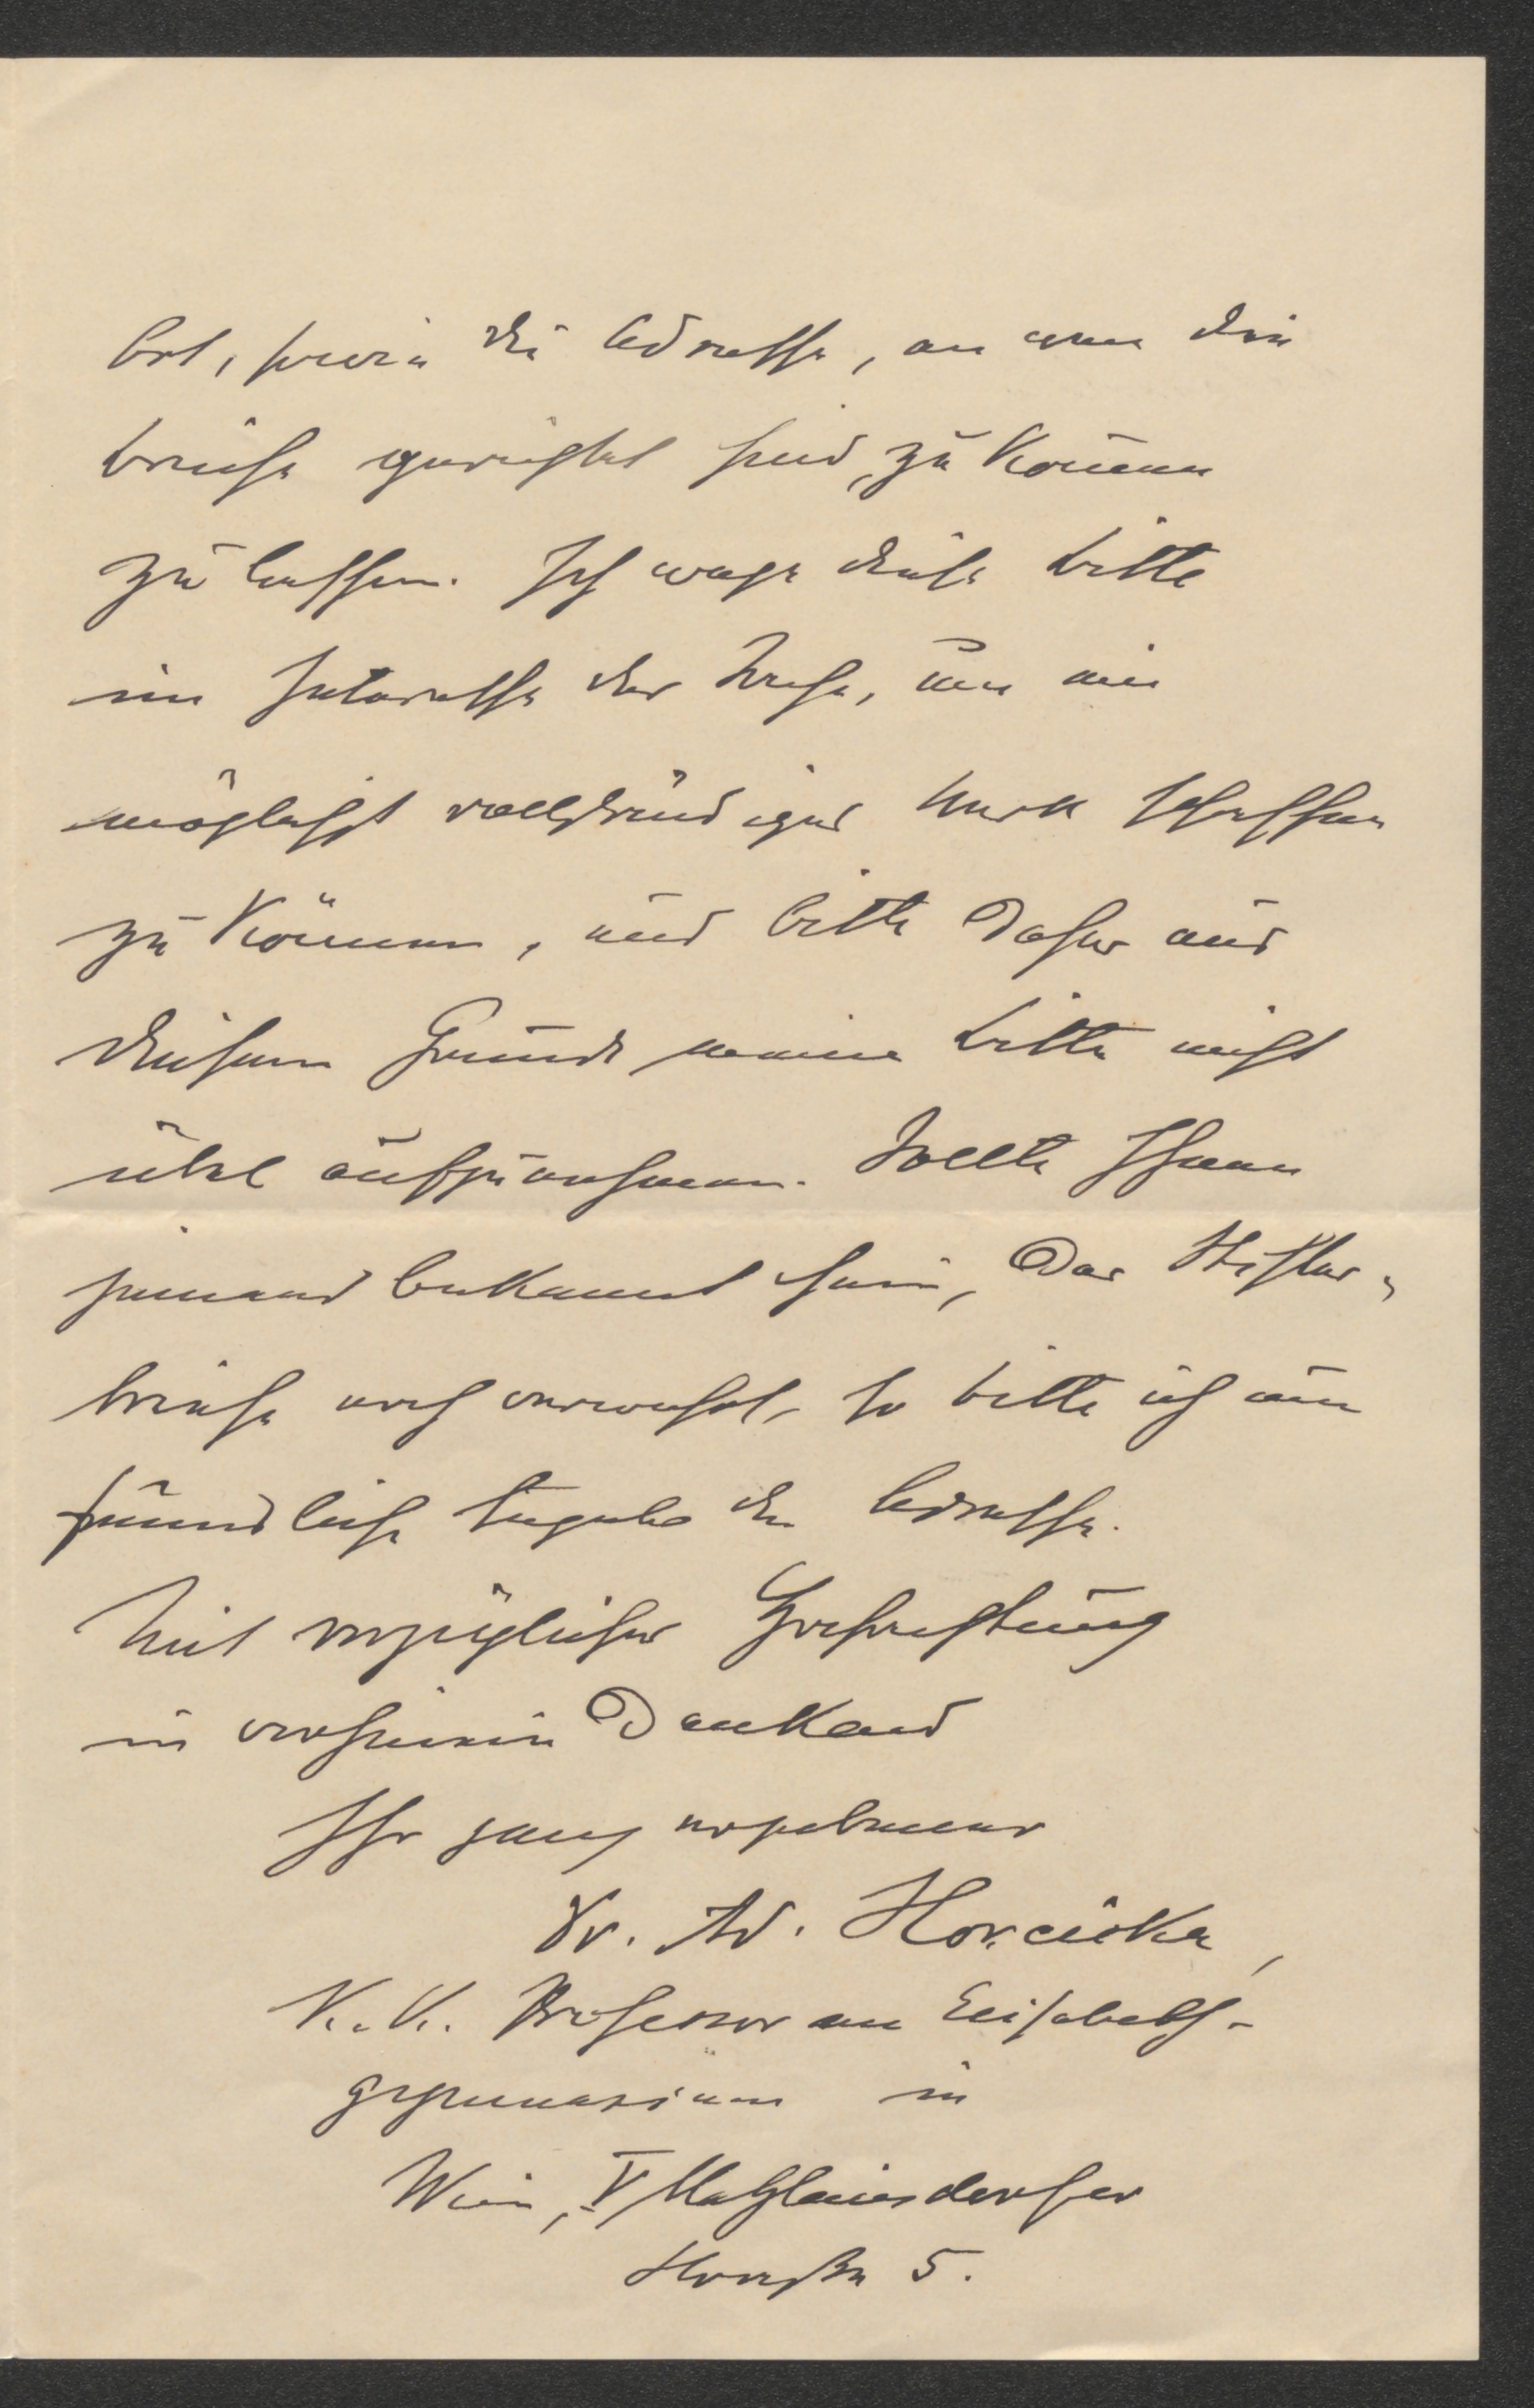 Ort, sowie die Adresse, an wen die
Briefe gerichtet sind, zu kommen
zu lassen. Ich wage diese Bitte
im Interesse der Sache, um ein
möglichst vollständiges Werk schaffen
zu können, und bitte daher aus
diesem Grunde meine Bitte nicht
übel aufzunehmen. Sollte Ihnen
jemand bekannt sein, der Stifter-
briefe noch verwahrt, so bitte ich um
freundliche Angabe der Adresse.
Mit vorzüglicher Hochachtung
im vorhinein dankend
Ihr ganz ergebener
Dr. Ad. Horcicka,
K. K. Professor am Elisabeth-
gymnasium in
Wien, V Matzleinsdorfer
Straße 5.